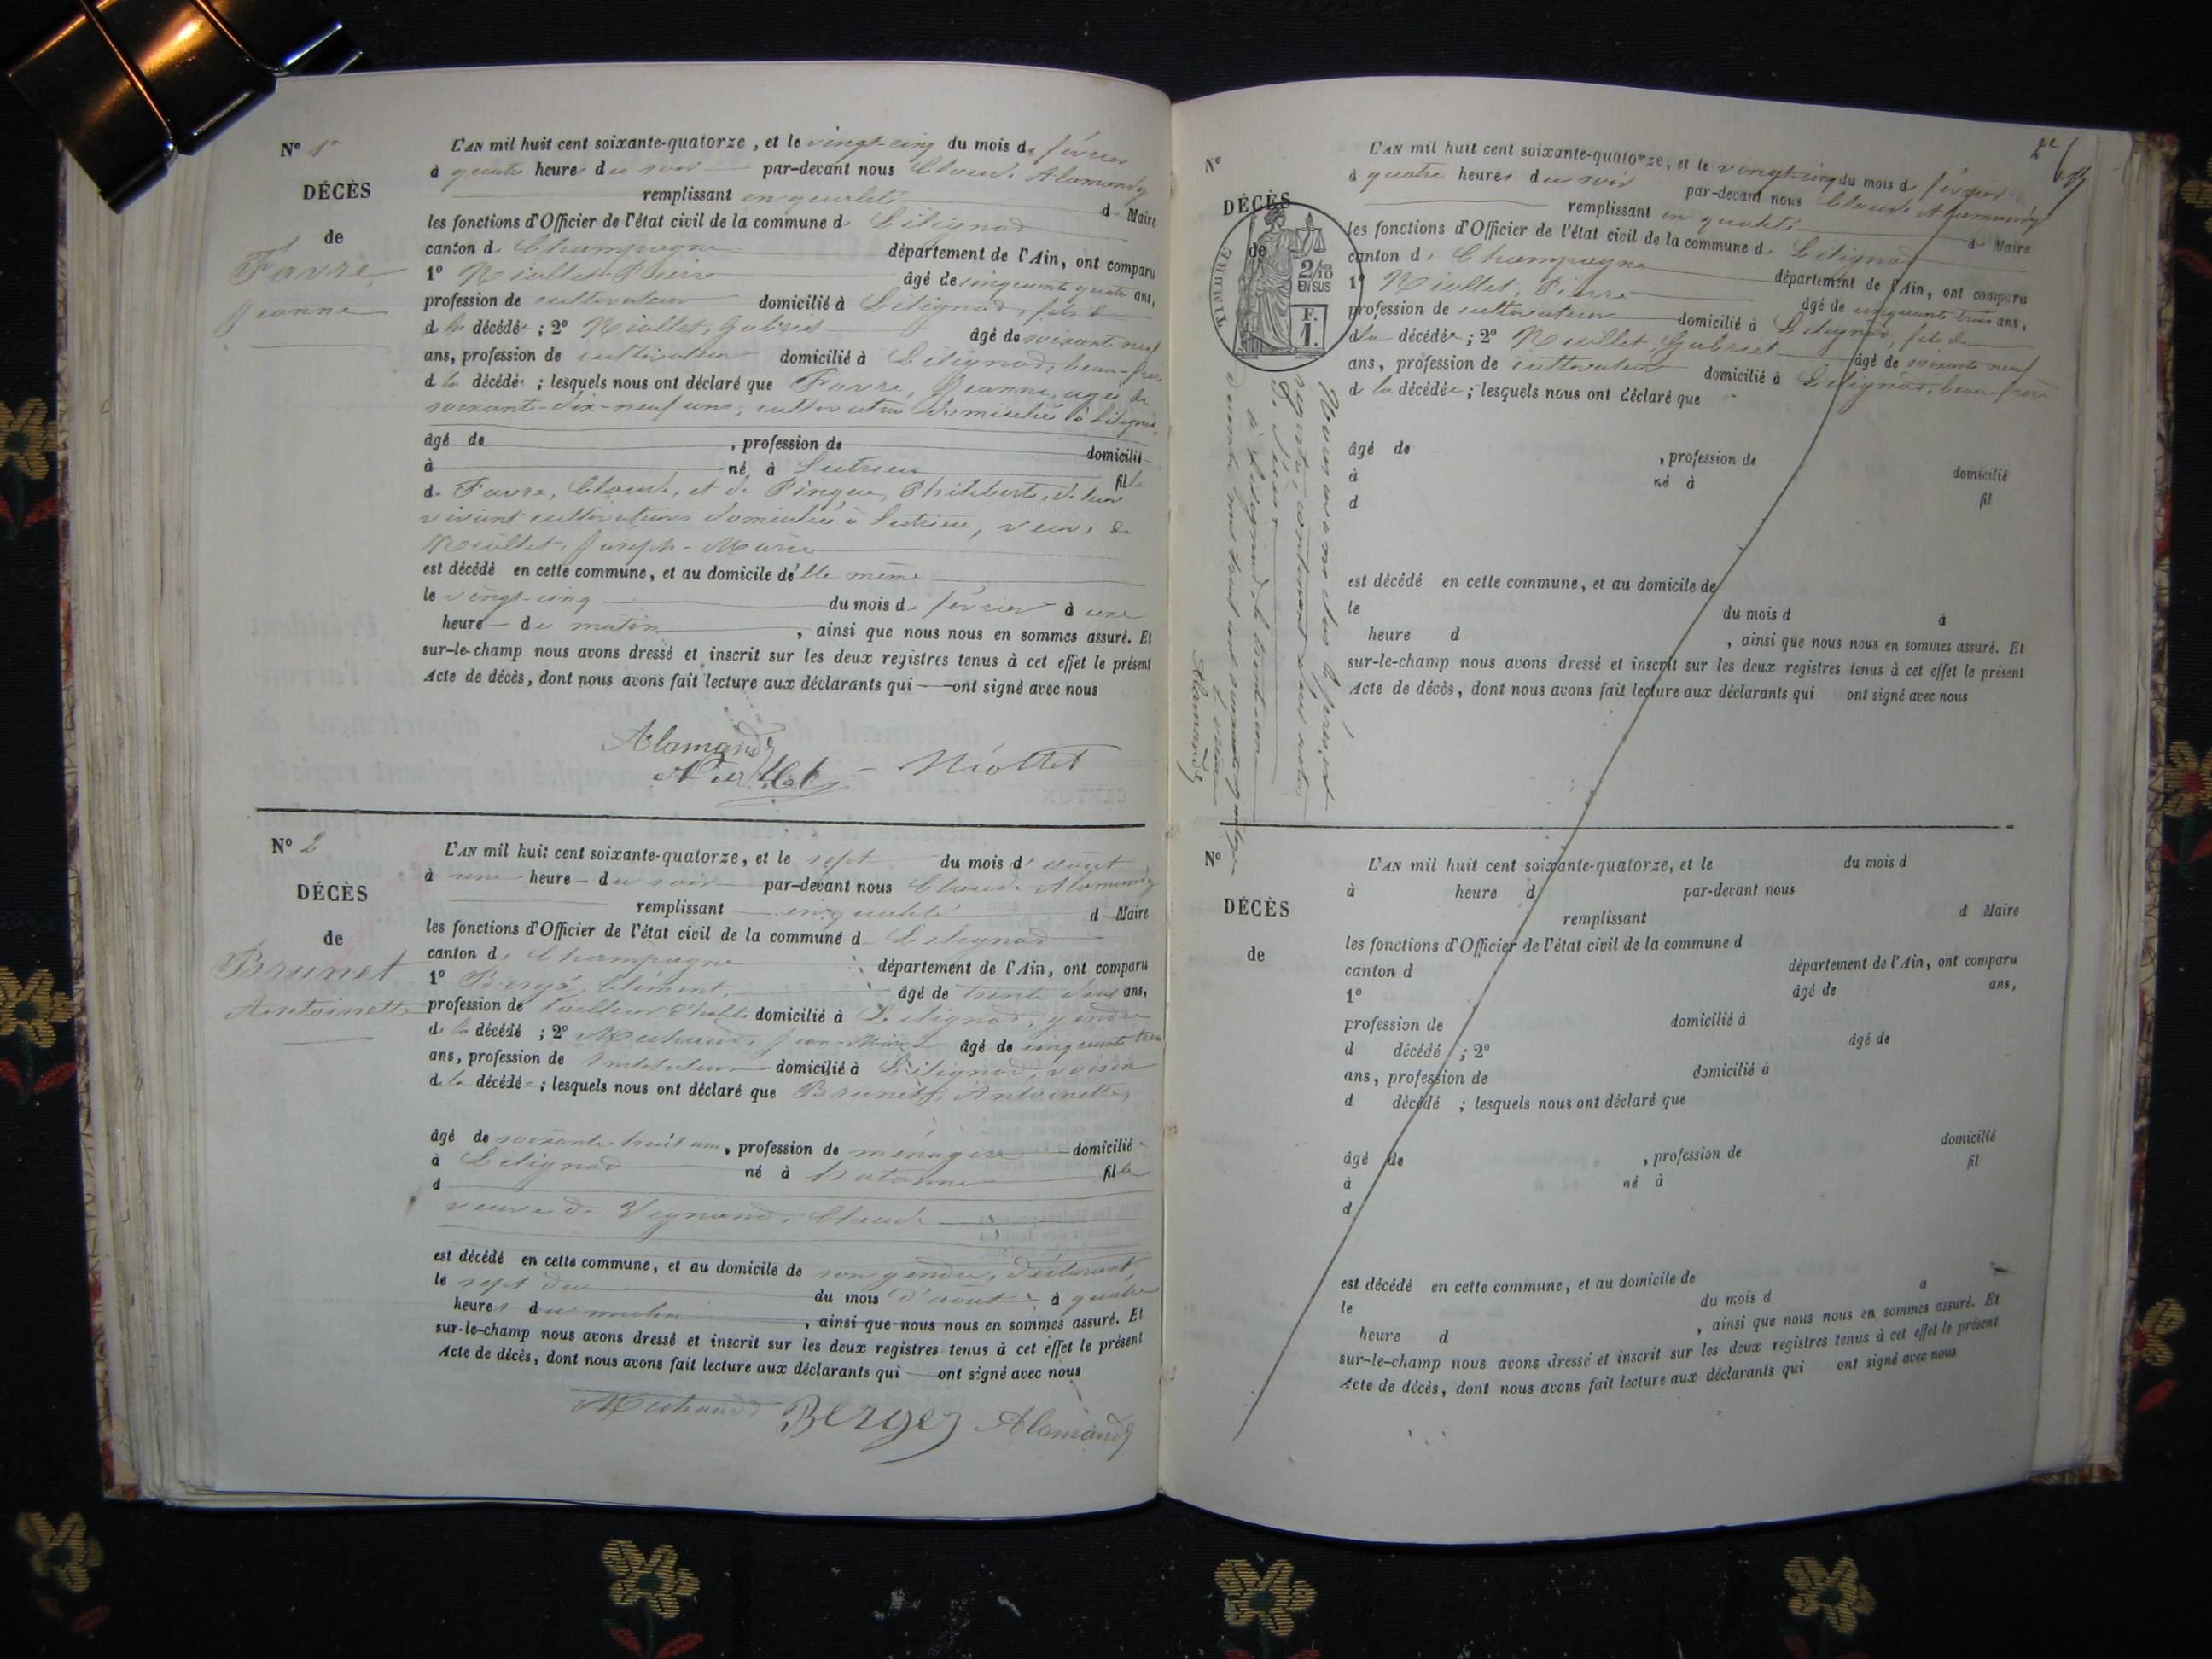 N° 1er
DÉCÈS
de
Favre
Jeanne
L'AN mil huit cent soixante-quatorze, et le vingt-cinq du mois de février
à quatre heures du soir par-devant nous Claude Alamandy
remplissant en qualité d Maire
les fonctions d'Officier de l'état civil de la commune de Lilignod
canton de Champagne département de l'Ain, ont comparu
1° Niollet Pierre âgé de cinquante quatre ans,
profession de cultivateur domicilié à Lilignod, fils de
de la décédée ; 2° Niollet, Gabriel âgé de soixante neuf
ans, profession de cultivateur domicilié à Lilignod, beau-frère
de la décédée ; lesquels nous ont déclaré que Favre, Jeanne, agée de
soixante-dix-neuf ans, cultivatrice domiciliée à Lilignod,
âgé de , profession de domicilié
à né à Sutrieu fille
de Favre, Claude, et de Pingeon, Philiberte, de leur
vivant cultivateurs domiciliés à Sutrieu, veuve de
Niollet, Joseph-Marie
est décédé en cette commune, et au domicile d'elle même
le vingt-cinq du mois de février à une
heure du matin , ainsi que nous nous en sommes assuré. Et
sur-le-champ nous avons dressé et inscrit sur les deux registres tenus à cet effet le présent
Acte de décès, dont nous avons fait lecture aux déclarants qui ont signé avec nous
Alamandy
Niollet Niollet
N° 2
DÉCÈS
de
Brunet
Antoinette
L'AN mil huit cent soixante-quatorze, et le sept du mois d'août
à une heure du soir par-devant nous Claude Alamandy
remplissant en qualité d Maire
les fonctions d'Officier de l'état civil de la commune de Lilignod
canton de Champagne département de l'Ain, ont comparu
1° Berger, Clément, âgé de trente deux ans,
profession de Tailleur d'hab. domicilié à Lilignod, gendre
de la décédé ; 2° Michaud, Jean-Marie âgé de cinquante trois
ans, profession de Instituteur domicilié à Lilignod, voisin
de la décédée ; lesquels nous ont déclaré que Brunet, Antoinette,
âgé de soixante-huit ans, profession de ménagère domicilié
à Lilignod né à hotonne fille
d
veuve de Vignand, Claude
est décédé en cette commune, et au domicile de son gendre, déclarant,
le sept du mois d'août à quatre
heures du matin , ainsi que nous nous en sommes assuré. Et
sur-le-champ nous avons dressé et inscrit sur les deux registres tenus à cet effet le présent
Acte de décès, dont nous avons fait lecture aux déclarants qui ont signé avec nous
Michaud Berger Alamandy
2e
N°
DÉCÈS
de
TIMBRE
2/10
EN SUS
F.
1.
L'AN mil huit cent soixante-quatorze, et le vingt-cinq du mois de février
à quatre heures du soir par-devant nous Claude Alamandy
remplissant en qualité d Maire
les fonctions d'Officier de l'état civil de la commune de Lilignod
canton de Champagne département de l'Ain, ont comparu
1° Niollet, Pierre âgé de cinquante trois ans,
profession de cultivateur domicilié à Lilignod, fils de
de la décédée ; 2° Niollet Gabriel âgé de soixante neuf
ans, profession de cultivateur domicilié à Lilignod, beau-frère
de la décédée ; lesquels nous ont déclaré que
âgé de , profession de domicilié
à né à fil
d
est décédé en cette commune, et au domicile de
le du mois d à
heure d , ainsi que nous nous en sommes assuré. Et
sur-le-champ nous avons dressé et inscrit sur les deux registres tenus à cet effet le présent
Acte de décès, dont nous avons fait lecture aux déclarants qui ont signé avec nous
Nous avons clos le présent
registre, contenant deux actes
à Lilignod, le trente-un
décembre mil huit cent soixante-quatorze
Le maire
Alamandy
N°
DÉCÈS
de
L'AN mil huit cent soixante-quatorze, et le du mois d
à heure d par-devant nous
remplissant d Maire
les fonctions d'Officier de l'état civil de la commune d
canton d département de l'Ain, ont comparu
1° âgé de ans,
profession de domicilié à
d décédé ; 2° âgé de
ans, profession de domicilié à
d décédé ; lesquels nous ont déclaré que
âgé de , profession de domicilié
à né à fil
d
est décédé en cette commune, et au domicile de
le du mois d à
heure d , ainsi que nous nous en sommes assuré. Et
sur-le-champ nous avons dressé et inscrit sur les deux registres tenus à cet effet le présent
Acte de décès, dont nous avons fait lecture aux déclarants qui ont signé avec nous